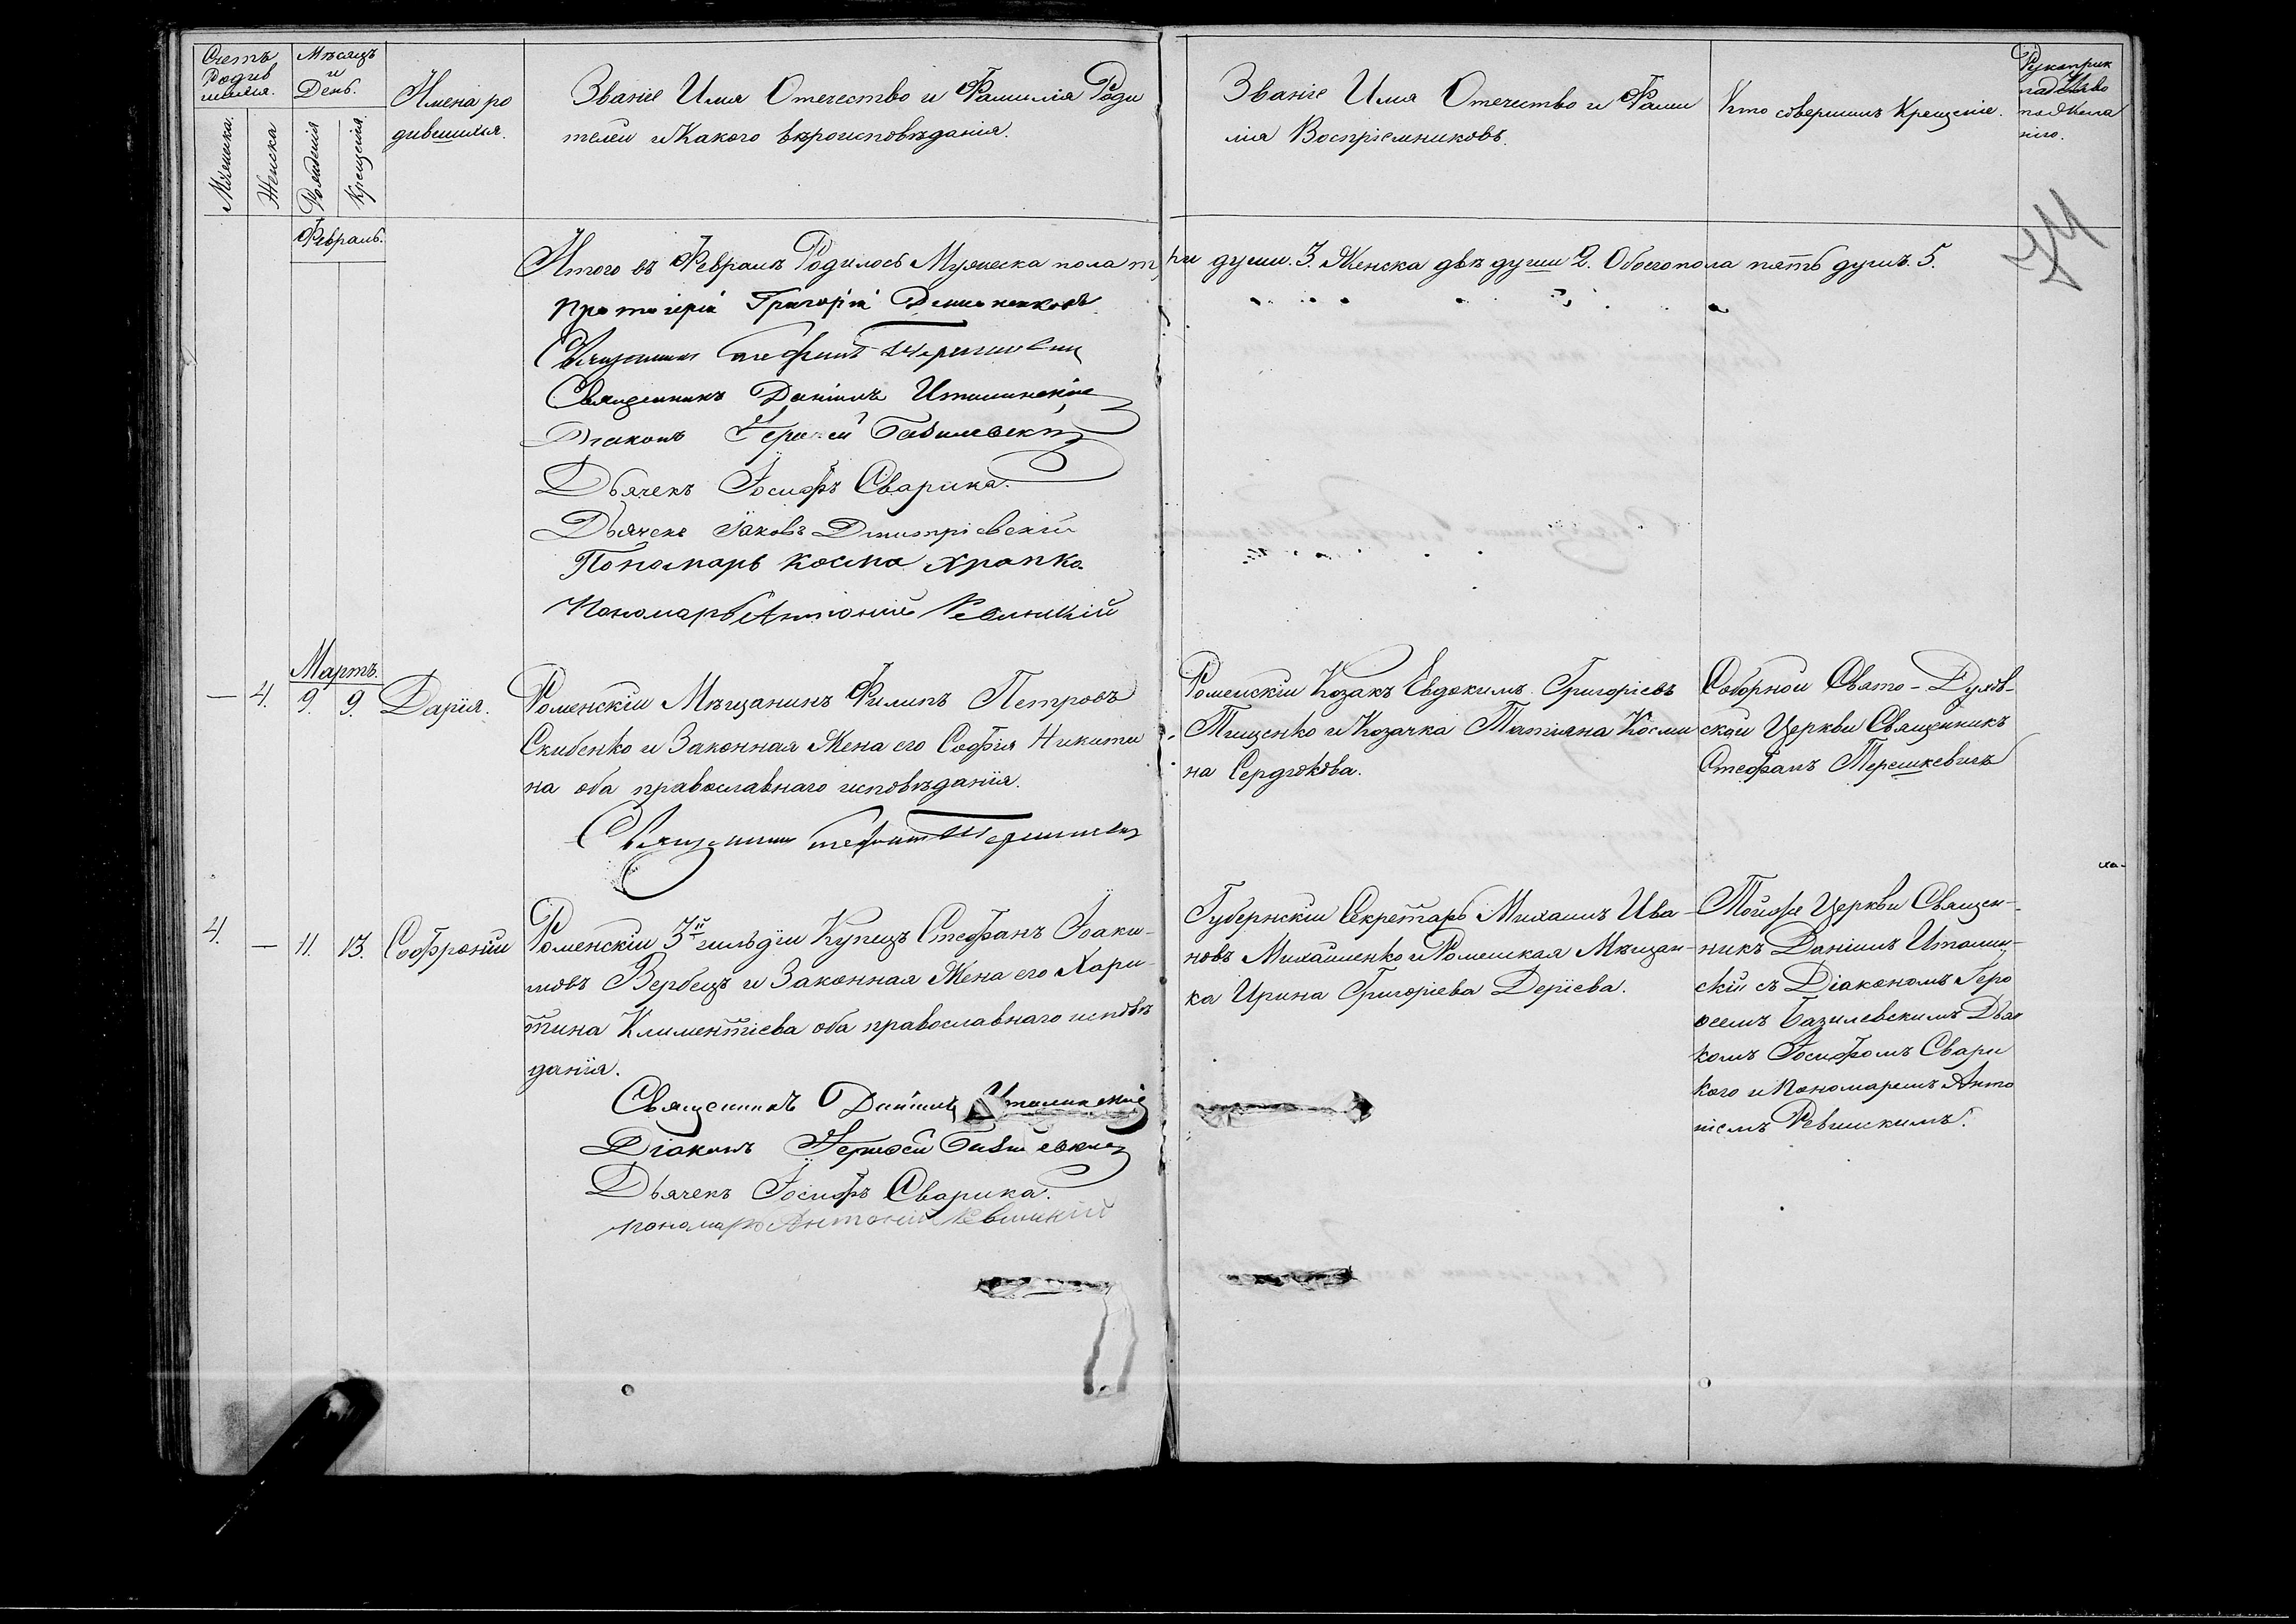 Счетъ
Родив
шихся.
Мѣсяцъ
и
День.
Мужеска.
Женска
Рожденія
Крещенія
Имена ро
дившихся.
Званіе Имя Отечество и Фамилія Роди
телей и Какого вѣроисповѣданія.
Званіе Имя Отечество и Фами
лія Воспріемниковъ.
Кто совершилъ Крещеніе.
Рукоприк
ладство
по Жела
нію.
Февраль.
Итого въ Февралѣ Родилось Мужеска пола три души. 3. Женска двѣ души 2. Обоего пола пять душъ. 5.
Протоіерій Григорій
Священникъ Стефанъ Терешкевич
Священникъ Даніилъ Италинскій
Діаконъ Герасій Базилевскій
Дьячекъ Іосифъ Сварика.
Дьячекъ Іаковъ Дмитріевскій
Пономарь Косма Храпко
Пономарь Антоній Ревицкій
Мартъ.
— 4. 9. 9. Дарія.
Роменскій Мѣщанинъ Филипъ Петровъ
Скибенко и Законная Жена его Софія Никити
на оба православнаго исповѣданія.
Священникъ Стефанъ Терешкевич
Роменскій Козакъ Евдокимъ Григоріевъ
Тищенко и Козачка Татіяна Косми
на Сердюкова.
Соборной Свято-Духов-
ской Церкви Священникъ
Стефанъ Терешкевичъ
4. — 11. 13. Софроній
Роменскій 3й гильдіи Купецъ Стефанъ Іоаки-
мовъ Вербецъ и Законная Жена его Хари-
тина Климентіева оба православнаго исповѣ
данія.
Священникъ Даніилъ Италинскій
Діаконъ Герасій Базилевскій
Дьячекъ Іосифъ Сварика.
пономарь Антоній Ревицкій
Губернскій Секретарь Михаилъ Ива-
новъ Михайленко и Роменская Мѣщан-
ка Ирина Григоріева Деріева.
Тойже Церкви Священ-
никъ Даніилъ Италин-
скій съ Діакономъ Гера
сіемъ Базилевскимъ Дьяч
комъ Іосифомъ Свари
кого и Пономаремъ Анто
ніемъ Ревицкимъ.